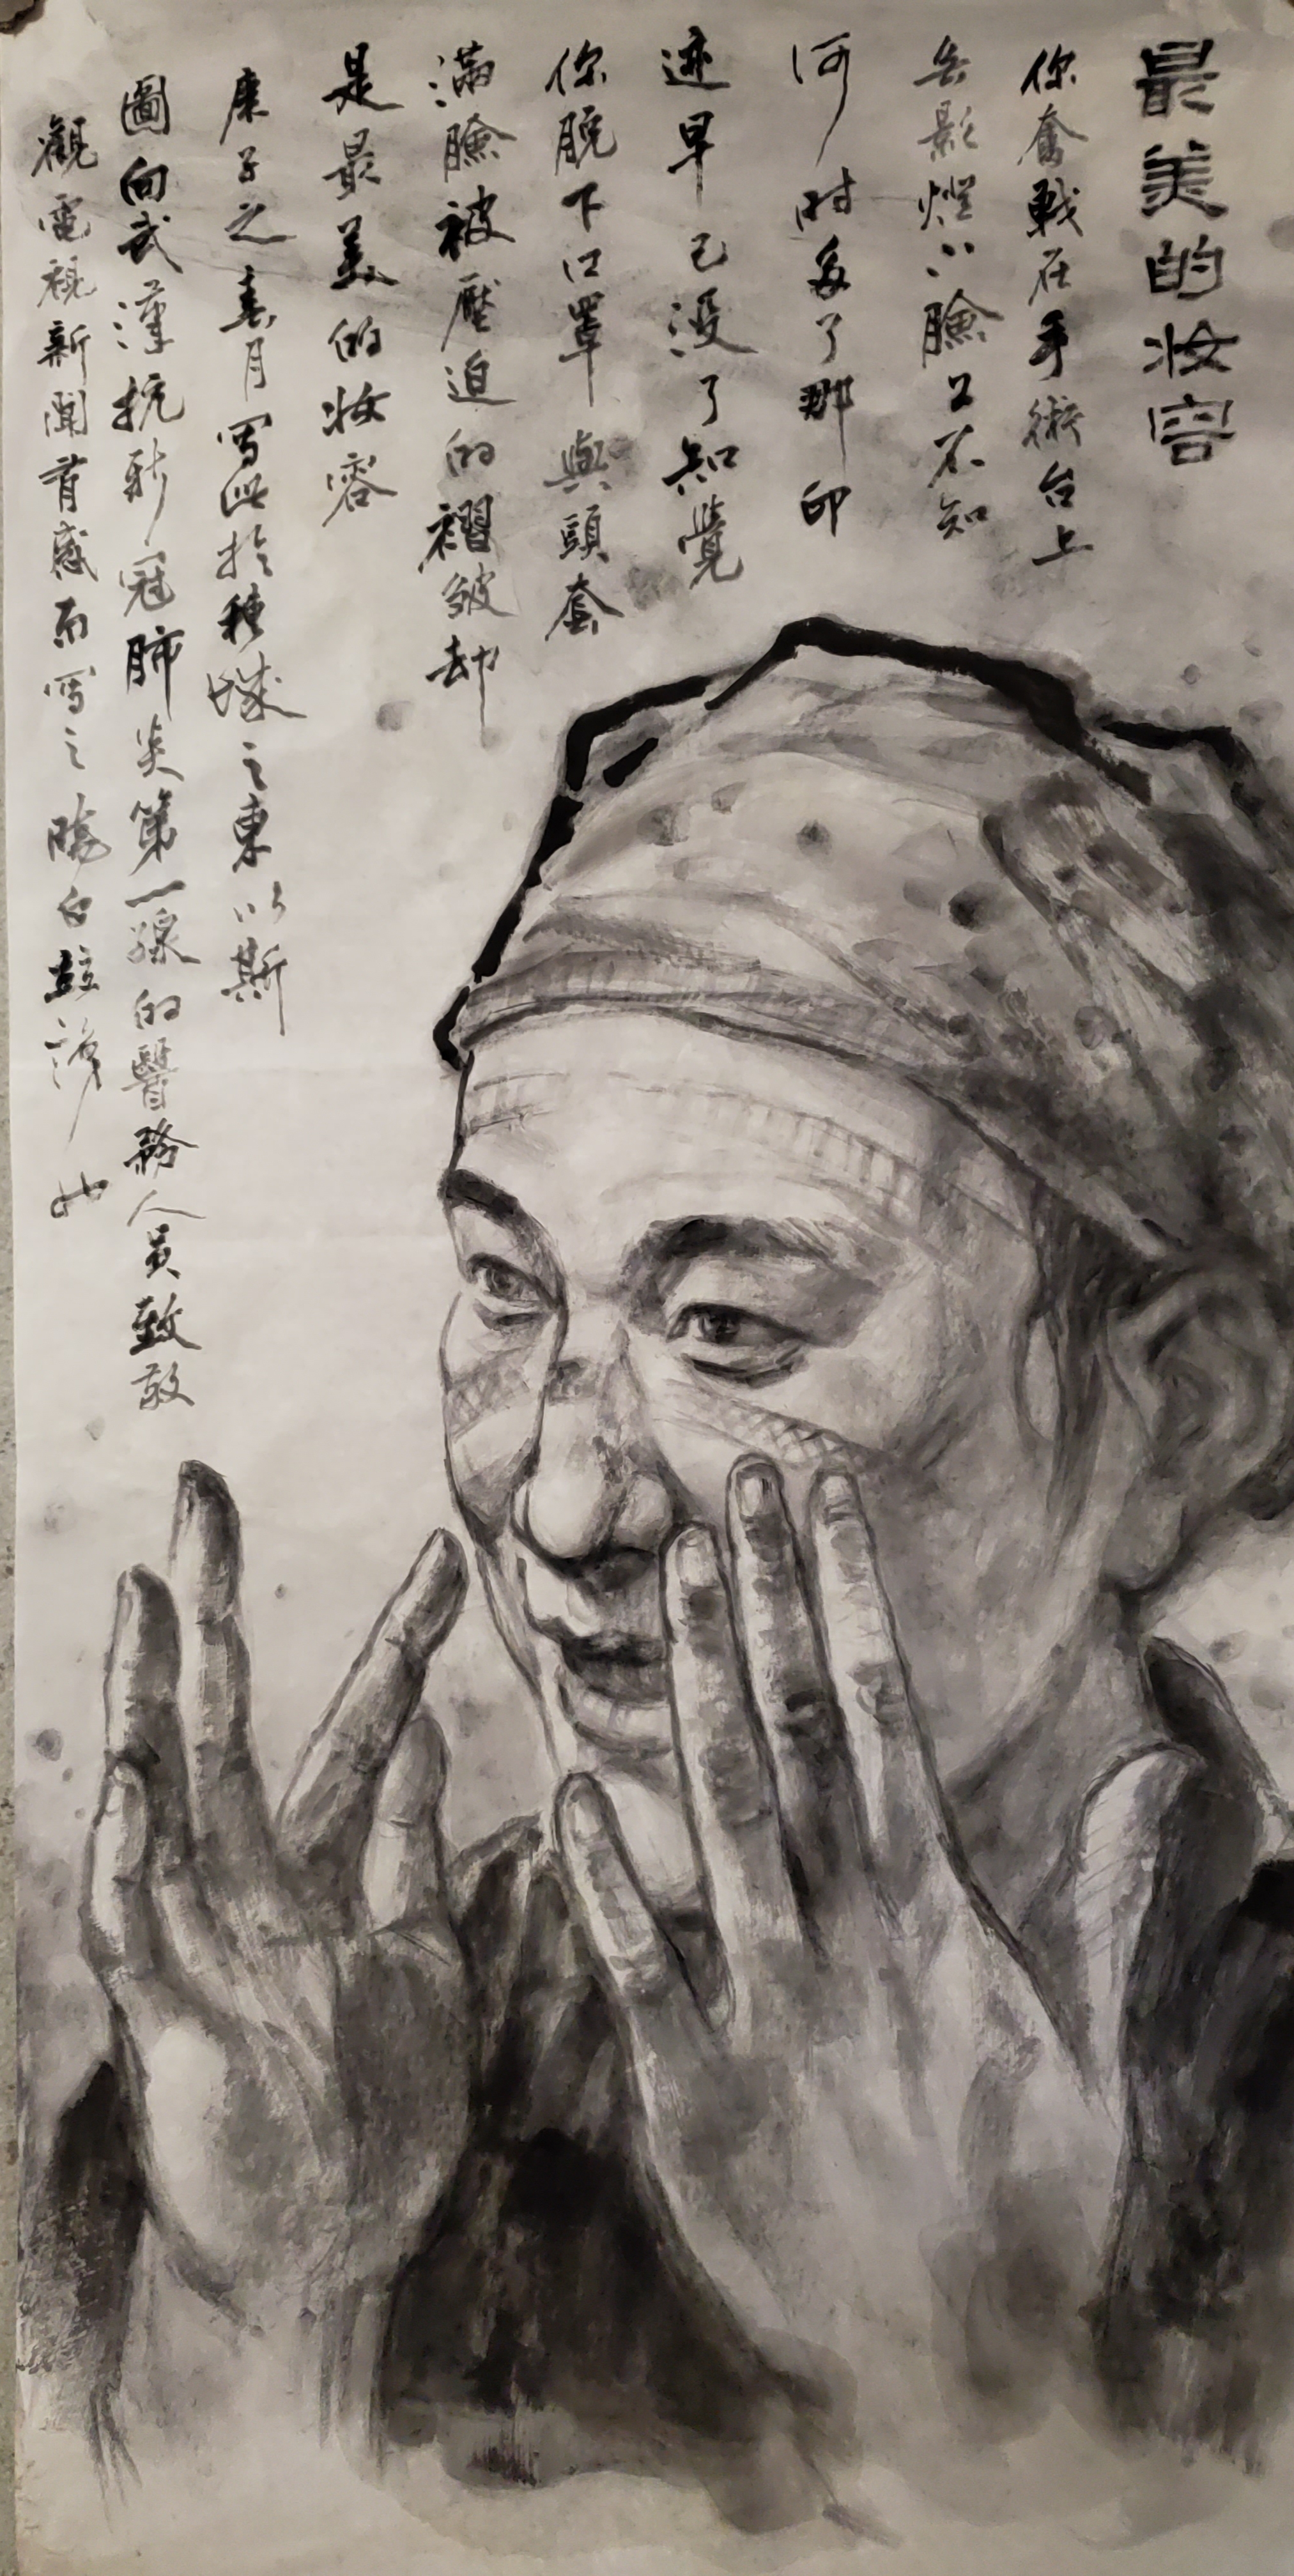 最美的妝容
你奮戰在手術台上
無影燈下臉上不知
何时多了那印
迹早已没了知覺
你脱下口罩與頭套
滿臉被壓迫的褶皱却
是最美的妝容
庚子之春月写此於穗城之東以斯
圖向武漢抗新冠肺炎第一線的醫務人員致敬
觀電視新聞有感而写之